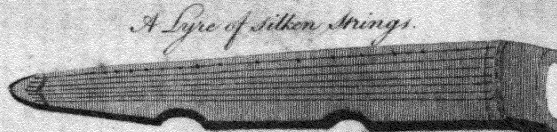 A Lyre of silken strings.